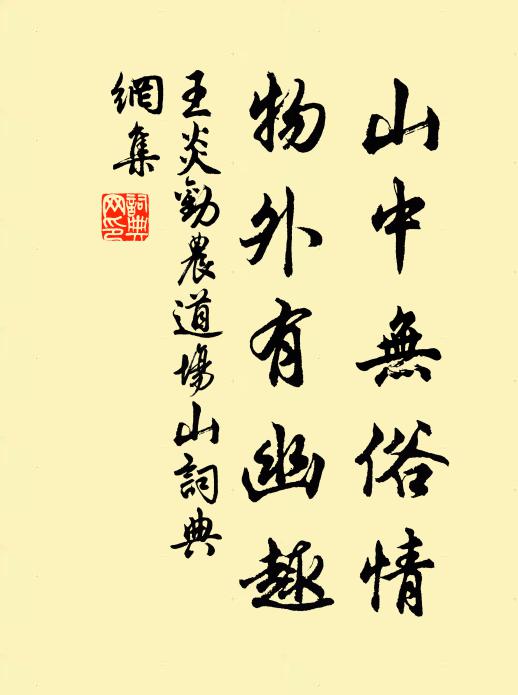 山中無俗情
物外有幽趣
王炎勸農道場山詞典
網集
詞典
网印